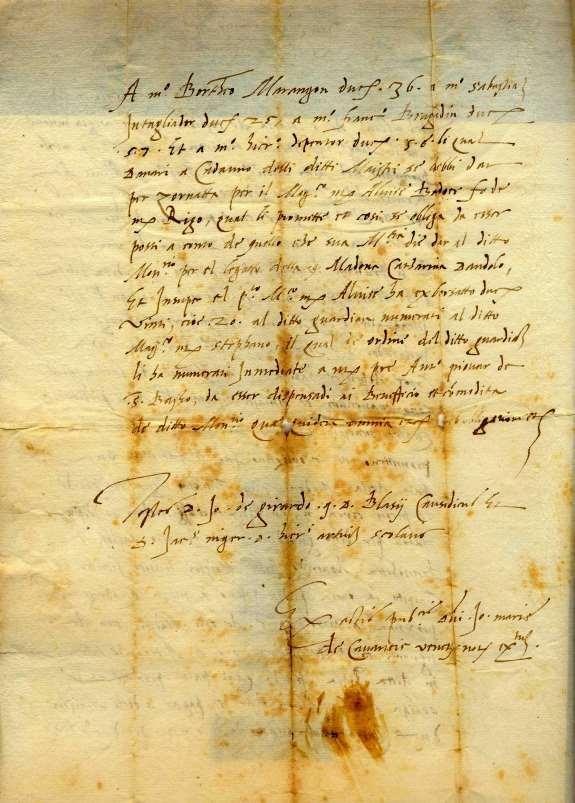 A mº Bortºº Marangon ducᵗ. 36. a mº Sabastiaⁿ
Intagliador ducᵗ 25. a mº francº Bragadin ducᵗ
57. Et a mº hierº depentor ducᵗ. 56. li qual
Danari a Cadauno delli ditti Maistri se debbi dar
per zornatta per il Magᶜº mˢ Aluise fo de
mˢ Rigo, qual li promete et cosi se obliga da esser
posti a conto de quello che sua Mᵗⁱᵃ die dar al ditto
Monʳⁱº per el legato della q Madona Cattarina Dandolo,
Et Insuper el pᵗº Mᶜº mˢ Aluise ha exborsatto ducᵗ
vinti, cioe .20. al ditto guardian numerati al ditto
Magᶜº mˢ stephano, il qual de ordine del ditto guardian
li ha numerati Inmediate a mˢ pre Antº piovan de
s. Basso, da esser dispensadi ai Beneffitio et comodita
de ditto Monʳⁱº quidem omnia
Testes D. Jo. de girardo q. D. Blasij Causidicus Et
D. Jacº niger D. hierº scolaris
Ex actis pubᶜⁱˢ Dni Jo. marie
de Cauaneis venetᵗ notᵗ